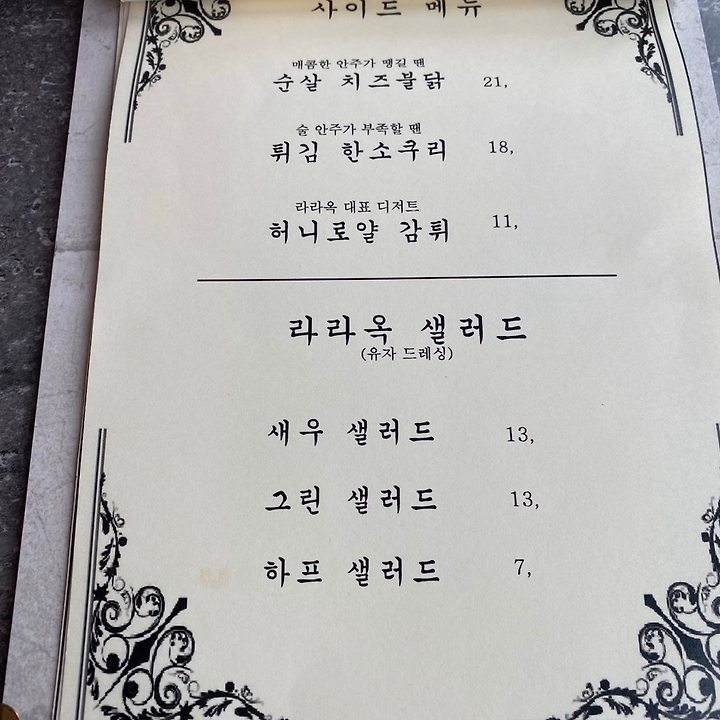 사이드 메뉴
매콤한 안주가 땡길 땐
순살 치즈불닭 21,
술 안주가 부족할 땐
튀김 한소쿠리 18,
라라옥 대표 디저트
허니로얄 감튀 11,
라라옥 샐러드
(유자 드레싱)
새우 샐러드 13,
그린 샐러드 13,
하프 샐러드 7,